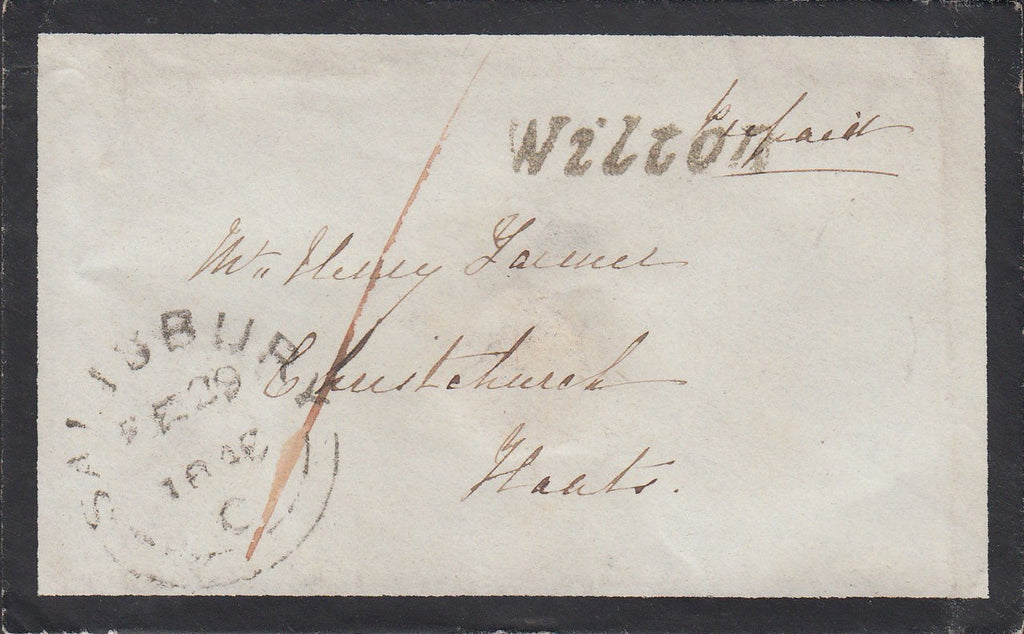 Wilton
Prepaid
Mr. Henry Farmer
Christchurch
Hants.
SALISBURY
FE 29
184
C